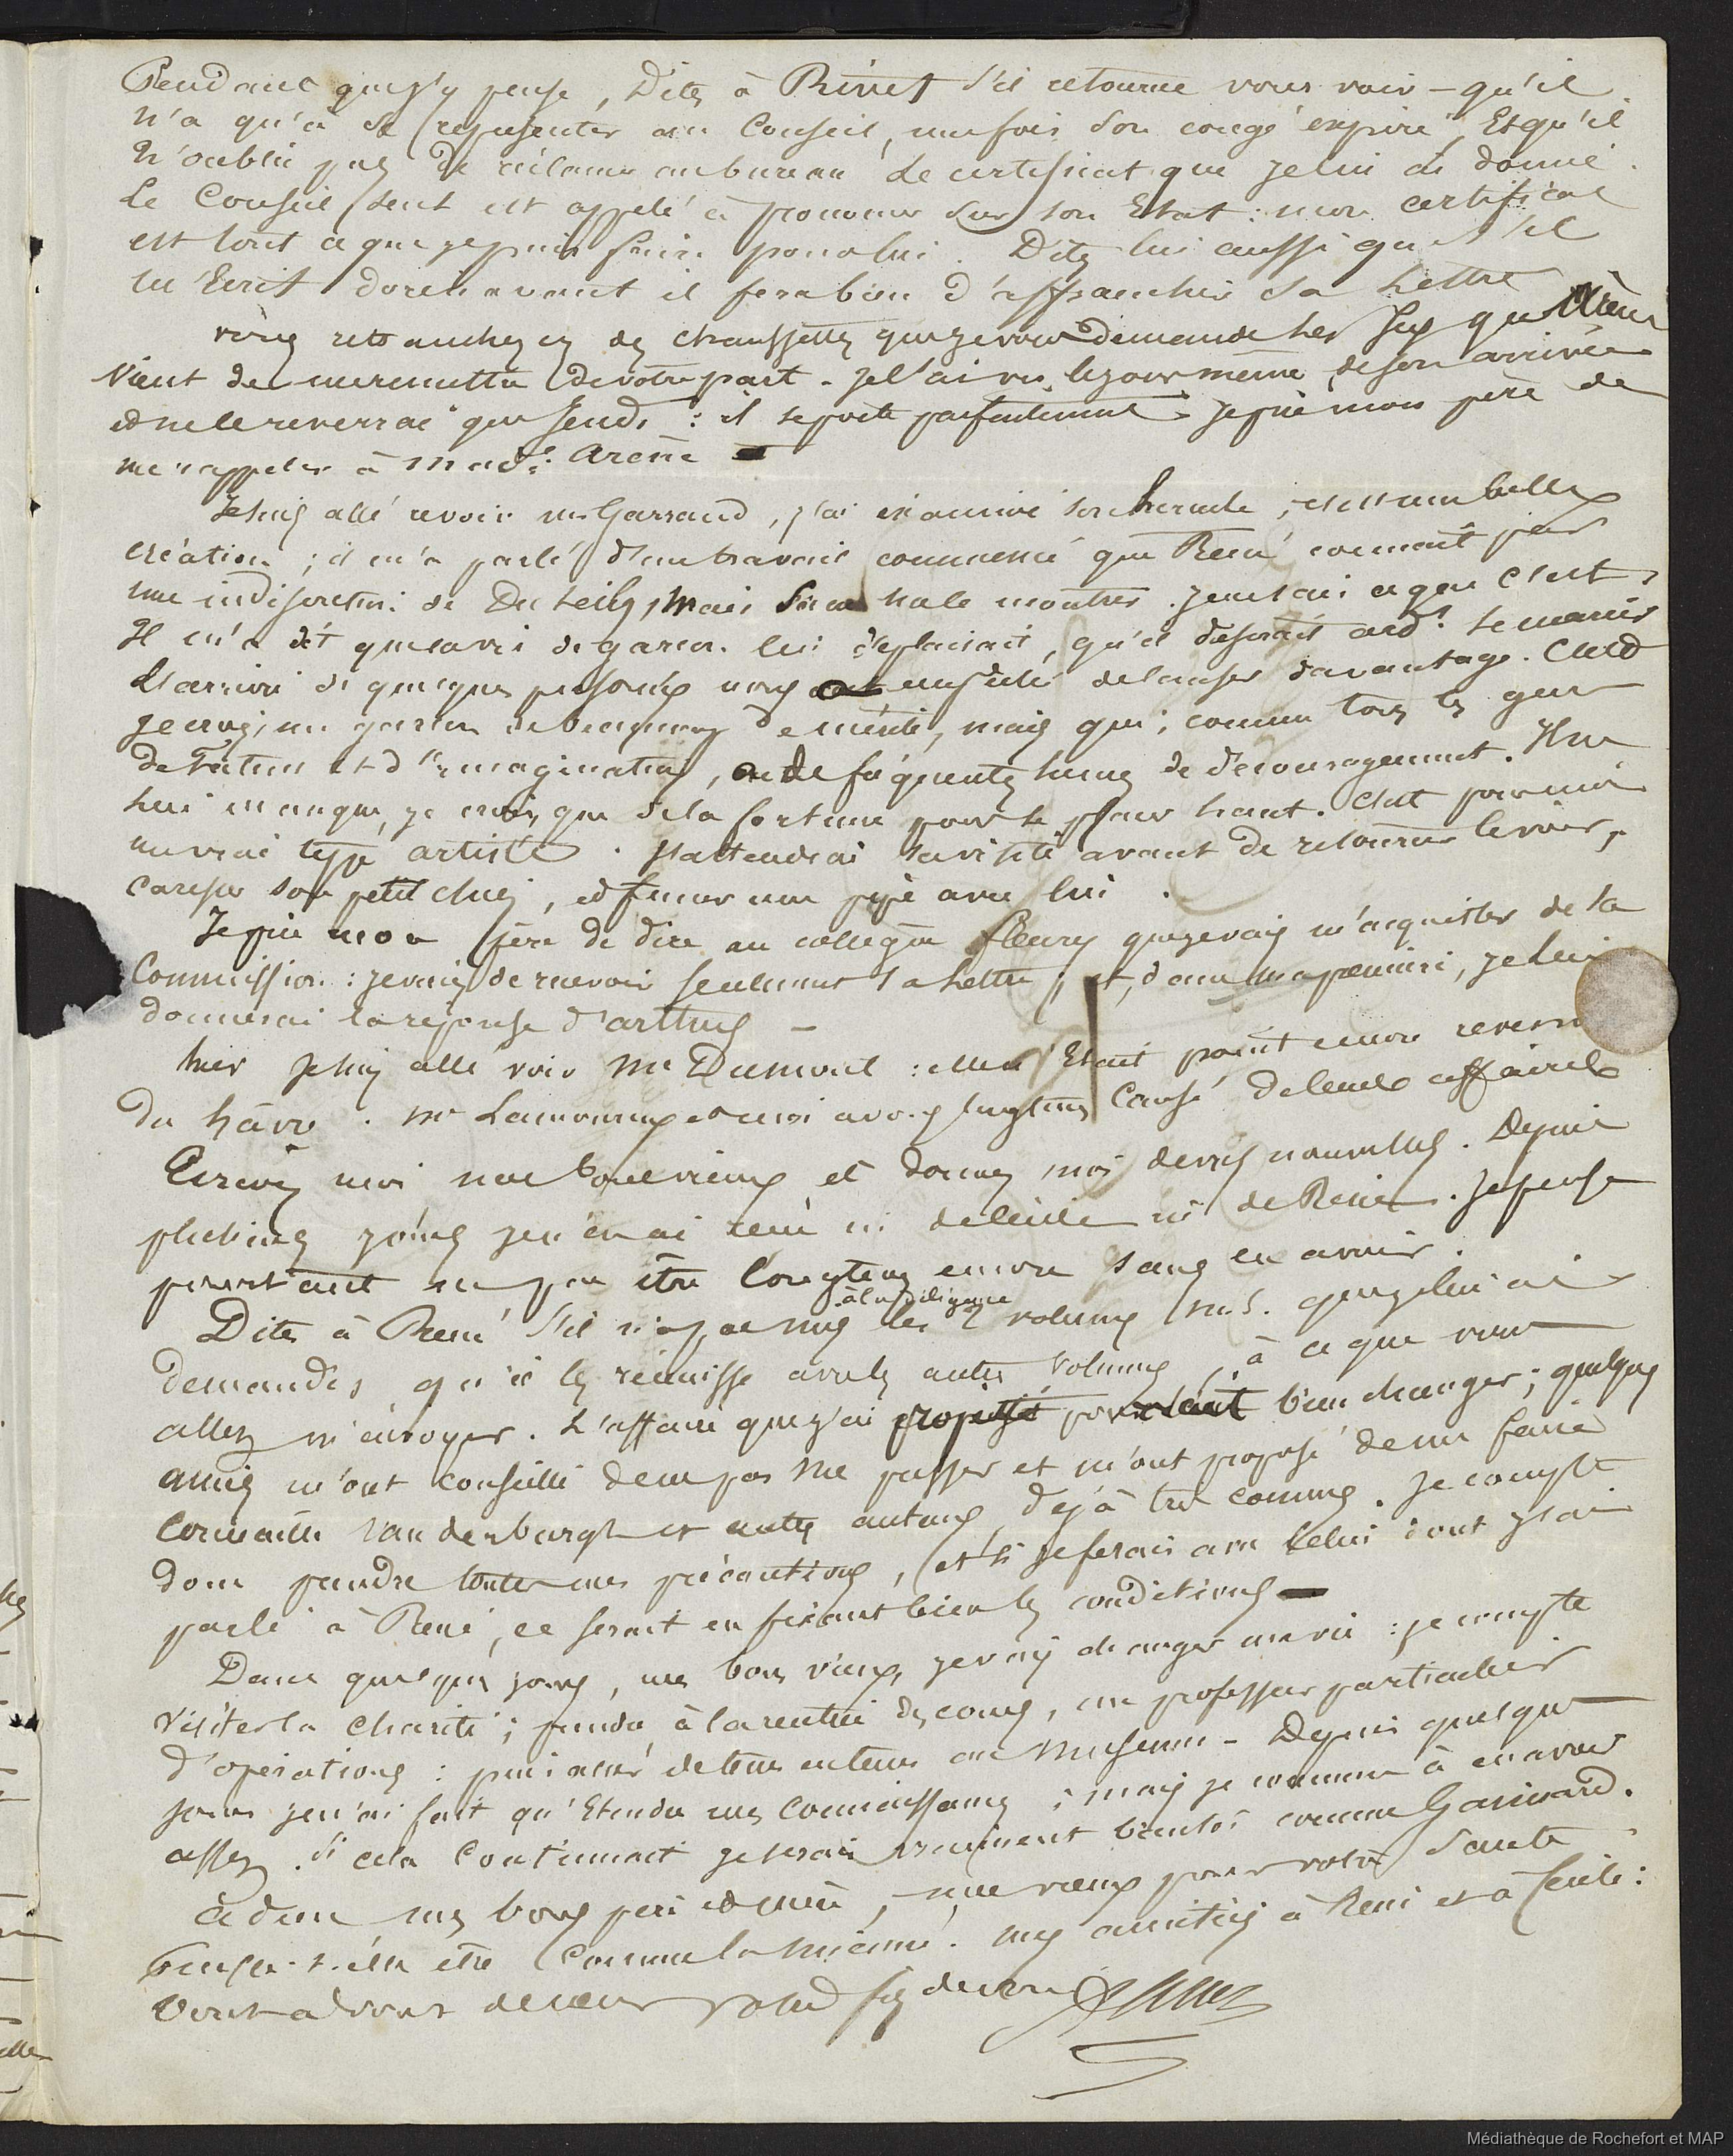 Pendant que j'y pense, Dites à Rivet s'il retourne vous voir – qu'il
n'a qu'à se représenter au Conseil, une fois son congé expiré, Et qu'il
n'oublie pas de réclamer au bureau le certificat que je lui ai donné.
Le Conseil seul est appelé à prononcer sur son Etat : mon certificat
est tout ce que je puis faire pour lui. Dites lui aussi que s'il
m'Ecrit dorénavant il fera bien d'affranchir sa Lettre
vous retrancherez des chaussettes que je vous demande les six que
vient de me remettre de votre part. Je l'ai vu le jour même de son arrivée
et ne le reverrai que Jeudi : il se porte parfaitement. Je prie mon père de
me rappeler à Made Arène
Je suis allé revoir Mr Garraud, j'ai examiné son hercule, c'est une belle
création ; il m'a parlé d'un travail commencé que René connait par
une indiscrétion de mais sans me le montrer. Je ne sais ce que c'est.
Il m'a dit que la vie de garçon lui déplaisait, qu'il désirait se marier
L'arrivée de quelques personnes nous a empêché de causer davantage. C'est
je crois, un garçon de beaucoup de mérite, mais qui, comme tous les gens
de talent et d'imagination, a de fréquents temps de découragement. Il ne
lui manque, je crois, que de la fortune pour le placer haut. C'est pour moi
un vrai type artiste. J'attendrai sa visite avant de retourner le voir,
caresser son petit chien, et fumer une pipe avec lui.
Je prie mon père de dire au collègue fleury que je vais m'acquitter de sa
Commission : je viens de recevoir seulement sa Lettre ; et, dans ma première, je lui
donnerai la réponse d'arthus –
hier Je suis allé voir Me Dumont : elle n'Etait point encore revenue
du hâvre. Mr Lamoureux et moi avons longtems Causé de leurs affaires
Ecrivez moi mes bons vieux et donnez moi de vos nouvelles. Depuis
plusieurs jours je n'en ai reçu ni de Cécile ni de René. Je pense
pourtant ne pas être longtems encore sans en avoir.
à la diligence
Dites à René s'il n'a pas mis les 2 volumes in 8. que je lui ai
demandés, qu'il les réunisse avec les autres volumes, à ce que vous
allez m'envoyer. L'affaire que j'ai proposée pourrait bien changer ; quelques
amis m'ont conseillé de ne pas me presser et m'ont proposé de me faire
connaître Vandenburgh et autres auteurs déjà très connus. Je compte
donc prendre toutes mes précautions, et si je ferais avec celui dont j'ai
parlé à René, ce serait en fixant bien les conditions –
Dans quelques jours, mes bons vieux, je vais changer ma vie : je compte
visiter la Charité ; prendre, à la rentrée des cours, un professeur particulier
d'opérations : puis aller de tems en tems au Museum – Depuis quelques
jours je n'ai fait qu'Etendre mes Connaissances ; mais je commence à en avoir
assez. Si cela Continuait je serais vraiment bientôt comme Gaimard.
Adieu mes bons père et mère, mes vœux pour votre Santé
puisse-t-elle être Comme la mienne. mes amitiés à René et à Cécile :
tout à vous de cœur votre fils dévoué
Médiathèque de Rochefort et MAP